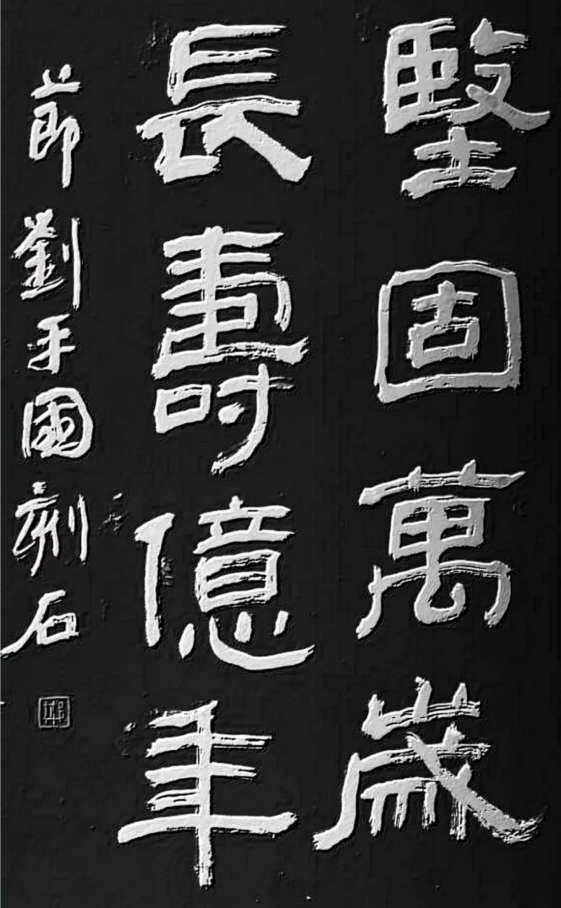 堅固萬歲
長壽億年
節劉平國刻石